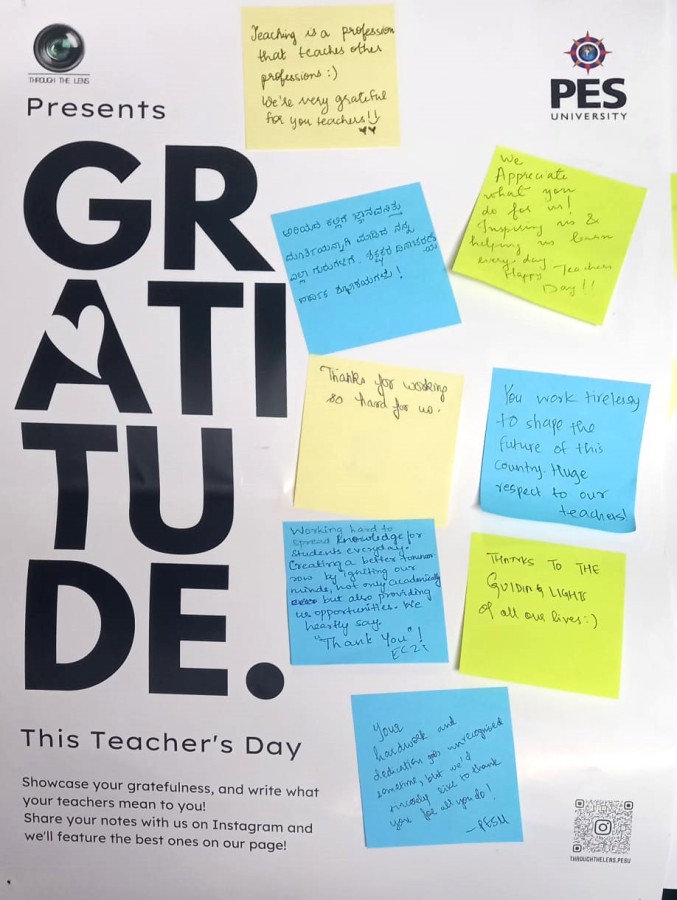 THROUGH THE LENS
Presents
GR
ATI
TU
DE.
This Teacher's Day
Showcase your gratefulness, and write what
your teachers mean to you!
Share your notes with us on Instagram and
we'll feature the best ones on our page!
PES
UNIVERSITY
Teaching is a profession
that teaches other
professions :)
We're very grateful
for you teachers!!
ಅರಿಯದ ಕಲ್ಲಿಗೆ ಜ್ಞಾನವನಿತ್ತು
ಮೂರ್ತಿಯನ್ನಾಗಿ ಮಾಡಿದ ನನ್ನ
ಎಲ್ಲಾ ಗುರುಗಳಿಗೆ, ಶಿಕ್ಷಕರ ದಿನಾಚರಣೆ
ಯ
ಹಾರ್ದಿಕ ಶುಭಾಶಯಗಳು!
We
Appreciate
what you
do for us!
Inspiring us &
helping us learn
every day
Happy Teachers
Day!!
Thanks for working
so hard for us.
You work tirelessy
to shape the
future of this
country. Huge
respect to our
teachers!
Working hard to
spread knowledge for
students everyday.
Creating a better tommor
row by igniting our
minds, not only academically
but also providing
us opportunities. We
heartly say.
"Thank You"!
EC21
THANKS TO THE
GUIDING LIGHTS
of all our lives :)
Your
hardwork and
dedication goes unrecognised
sometime, but we'd
sincerely like to thank
you for all you do!
-PESU
THROUGHTHELENS.PESU